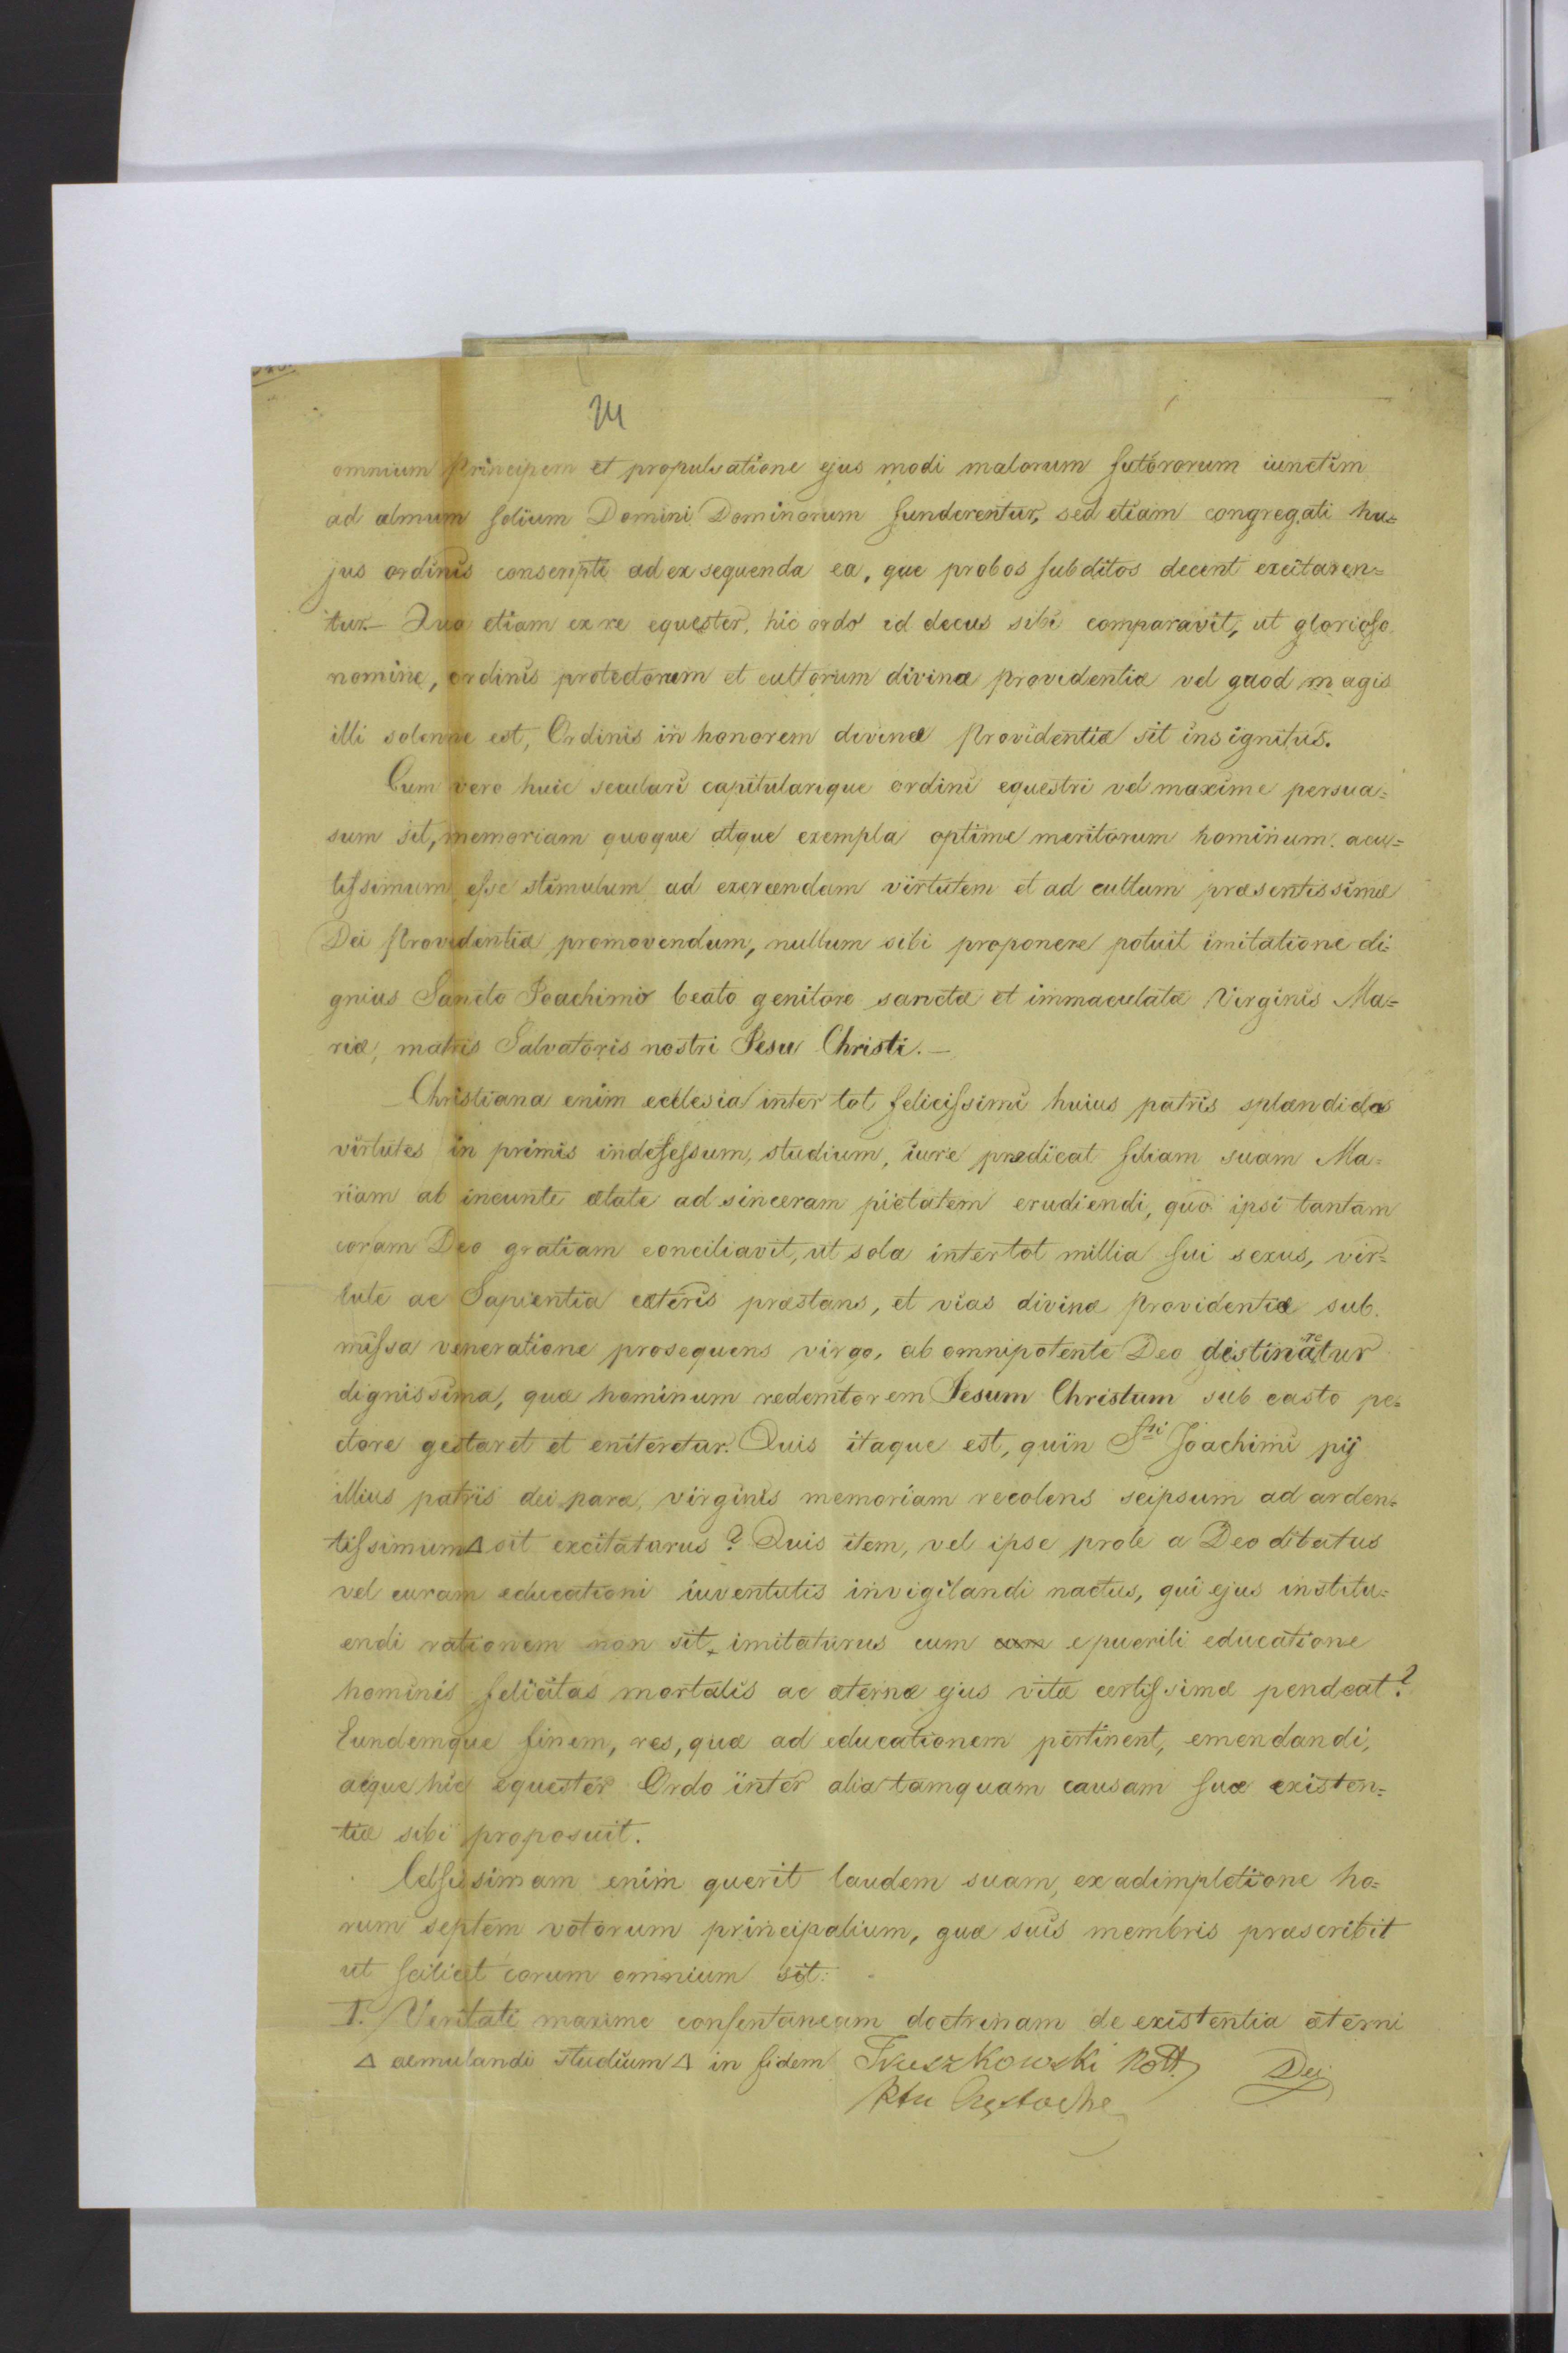 omnium Principem et propulsatione ejus modi malorum futurorum iunctim
ad almum solium Domini Dominorum funderentur, sed etiam congregati hu=
jus ordinis conscripti ad exsequenda ea, que probos subditos decent excitaren=
tur.— Qua etiam ex re equester, hic ordo id decus sibi comparavit, ut glorioso
nomine, ordinis protectorum et cultorum divinæ providentiæ vel quod magis
illi solenne est, Ordinis in honorem divinæ Providentiæ sit insignitus.
Cum vero huic seculari capitularique ordini equestri vel maxime persua=
sum sit, memoriam quoque atque exempla optime meritorum hominum acu=
tissimum esse stimulum ad exercendam virtutem et ad cultum præsentissimæ
Dei Providentiæ promovendum, nullum sibi proponere potuit imitatione di=
gnius Sancto Joachimo beato genitore sanctæ et immaculatæ Virginis Ma=
riæ, matris Salvatoris nostri Jesu Christi.—
Christiana enim ecclesia inter tot felicissimi huius patris splændidas
virtutes in primis indefessum, studium, iure prædicat filiam suam Ma=
riam ab incunte ætate ad sinceram pietatem erudiendi, quo ipsi tantam
coram Deo gratiam conciliavit, ut sola inter tot millia sui sexus, vir=
tute ac Sapientia cæteris præstans, et vias divinæ Providentiæ sub.
missa veneratione prosequens virgo, ab omnipotente Deo destinaretur
dignissima, quæ hominum redemtorem Jesum Christum sub casto pe=
ctore gestaret et eniteretur. Quis itaque est, quin Sti Joachimi pij
illius patris dei paræ, virginis memoriam recolens seipsum ad arden=
tissimum Δ sit excitaturus? Quis item, vel ipse prole a Deo ditatus
vel curam educationi iuventutis invigilandi nactus, qui ejus institu=
endi rationem non sit imitaturus cum e puerili educatione
hominis felicitas mortalis ac æternæ ejus vitæ certissimæ pendeat?
Eundemque finem, res, quæ ad educationem pertinent, emendandi,
æque hic equester Ordo inter alia tamquam causam suæ existen=
tiæ sibi proposuit.
Celsissimam enim querit laudem suam, ex adimpletione ho=
rum septem votorum principalium, quæ suis membris præscribit
ut scilicet eorum omnium sit:
I. Veritati maxime consentaneam doctrinam de existentia æterni
Δ aemulandi studium Δ in fidem Truszkowski Nott. Dei
Ptu Częstoche